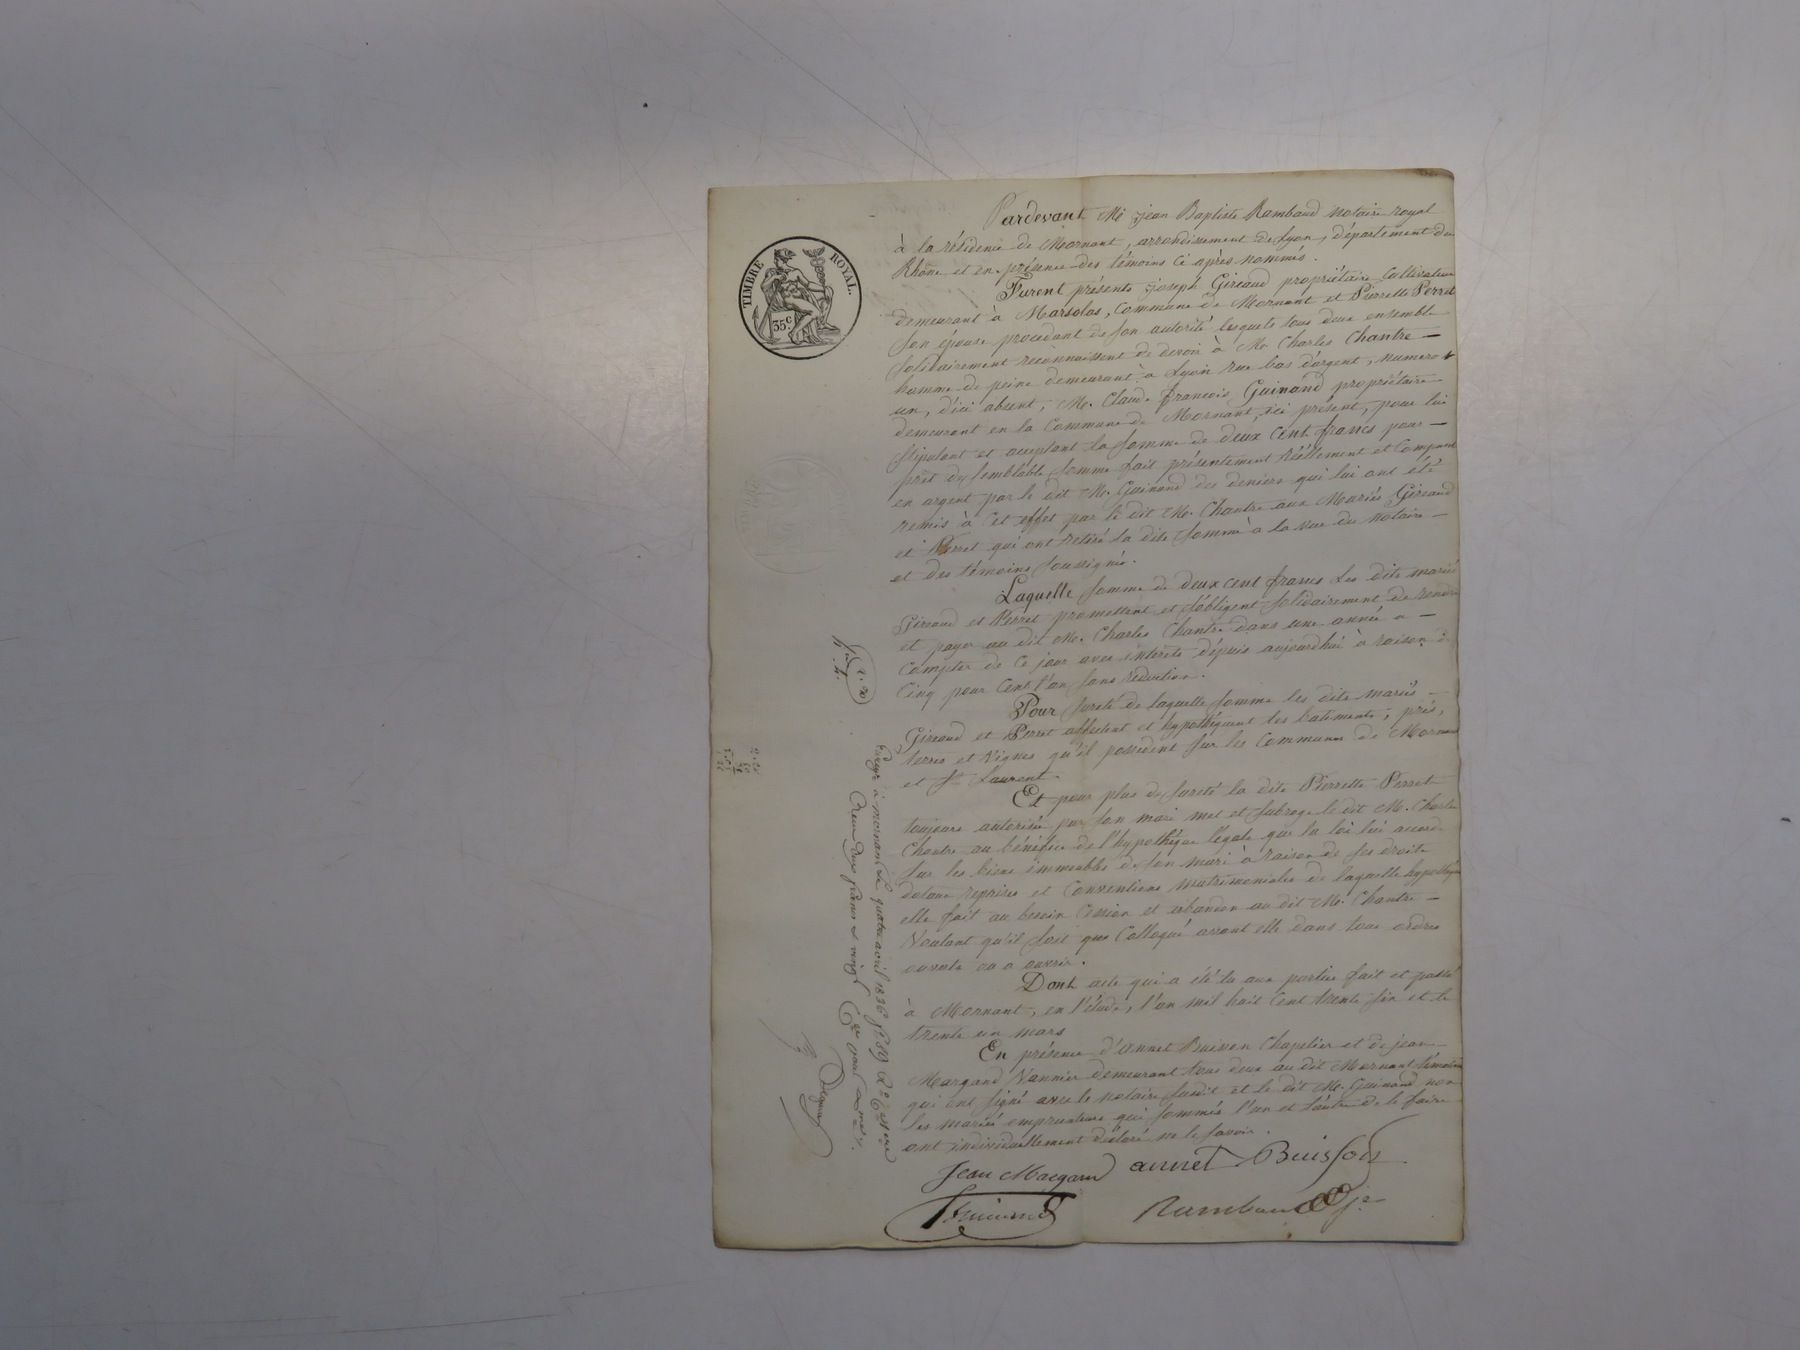 TIMBRE ROYAL.
35 c.
Pardevant Me jean Baptiste Rambaud notaire royal
à la résidence de Mornant, arrondissement de Lyon, département du
Rhône et en présence des témoins ci après nommés.
Furent présents joseph Gireaud propriétaire Cultivateur
demeurant à Marsolas, Commune de Mornant et Pierrette Perret
son épouse procedant de son autorité lesquels tous deux ensemble
solidairement reconnaissent de devoir à Mr Charles Chantre —
homme de peine demeurant à Lyon rue bas d'argent, numero
un, d'ici absent, Mr. Claude françois Guinand propriétaire
demeurant en la Commune de Mornant, ici présent, pour lui
stipulant et acceptant la somme de deux Cent francs pour —
prêt de semblable somme fait présentement réellement et Comptant
en argent par le dit Mr. Guinand des deniers qui lui ont été
remis à cet effet par le dit Mr. Chantre aux Mariés Gireaud
et Perret qui ont retiré la dite somme à la vue du notaire —
et des témoins soussignés.
Laquelle somme de deux cent francs les dits mariés
Gireaud et Perret promettent et s'obligent solidairement de rendre
et payer au dit Mr. Charles Chantre dans une année à —
Compter de ce jour avec intérêts depuis aujourdhui à raison de
Cinq pour Cent l'an sans réduction.
Pour sureté de laquelle somme les dits mariés —
Gireaud et Perret affectent et hypothéquent les batiments, prés,
terres et vignes qu'il possèdent sur les Communes de Mornant
et St Laurent.
Et pour plus de sureté la dite Pierrette Perret
toujours autorisée par son mari met et subroge le dit Mr. Charles
Chantre au bénéfice de l'hypothéque légale que la loi lui accorde
sur les biens immeubles de son mari à raison de ses droits
dotaux reprises et Conventions matrimoniales de laquelle hypothèque
elle fait au besoin Cession et abandon au dit Mr. Chantre —
Voulant qu'il soit Colloqué avant elle dans tous ordres
ouverts ou à ouvrir.
Dont acte qui a été lu aux parties fait et passé
à Mornant, en l'étude, l'an mil huit Cent trente six et le
trente un mars
En présence d'annet Buisson Chapelier et de jean
Margand Vannier demeurant tous deux au dit Mornant témoins
qui ont signé avec le notaire susdit et le dit Mr. Guinand non
les mariés emprunteurs qui sommés l'un et l'autre de le faire
ont individuellement déclaré ne le savoir.
Jean Margand annet Buisson
Guinand Rambaud
Enregé à mornant Le quatre avril 1836 fo 89
Reçu deux francs et vingt